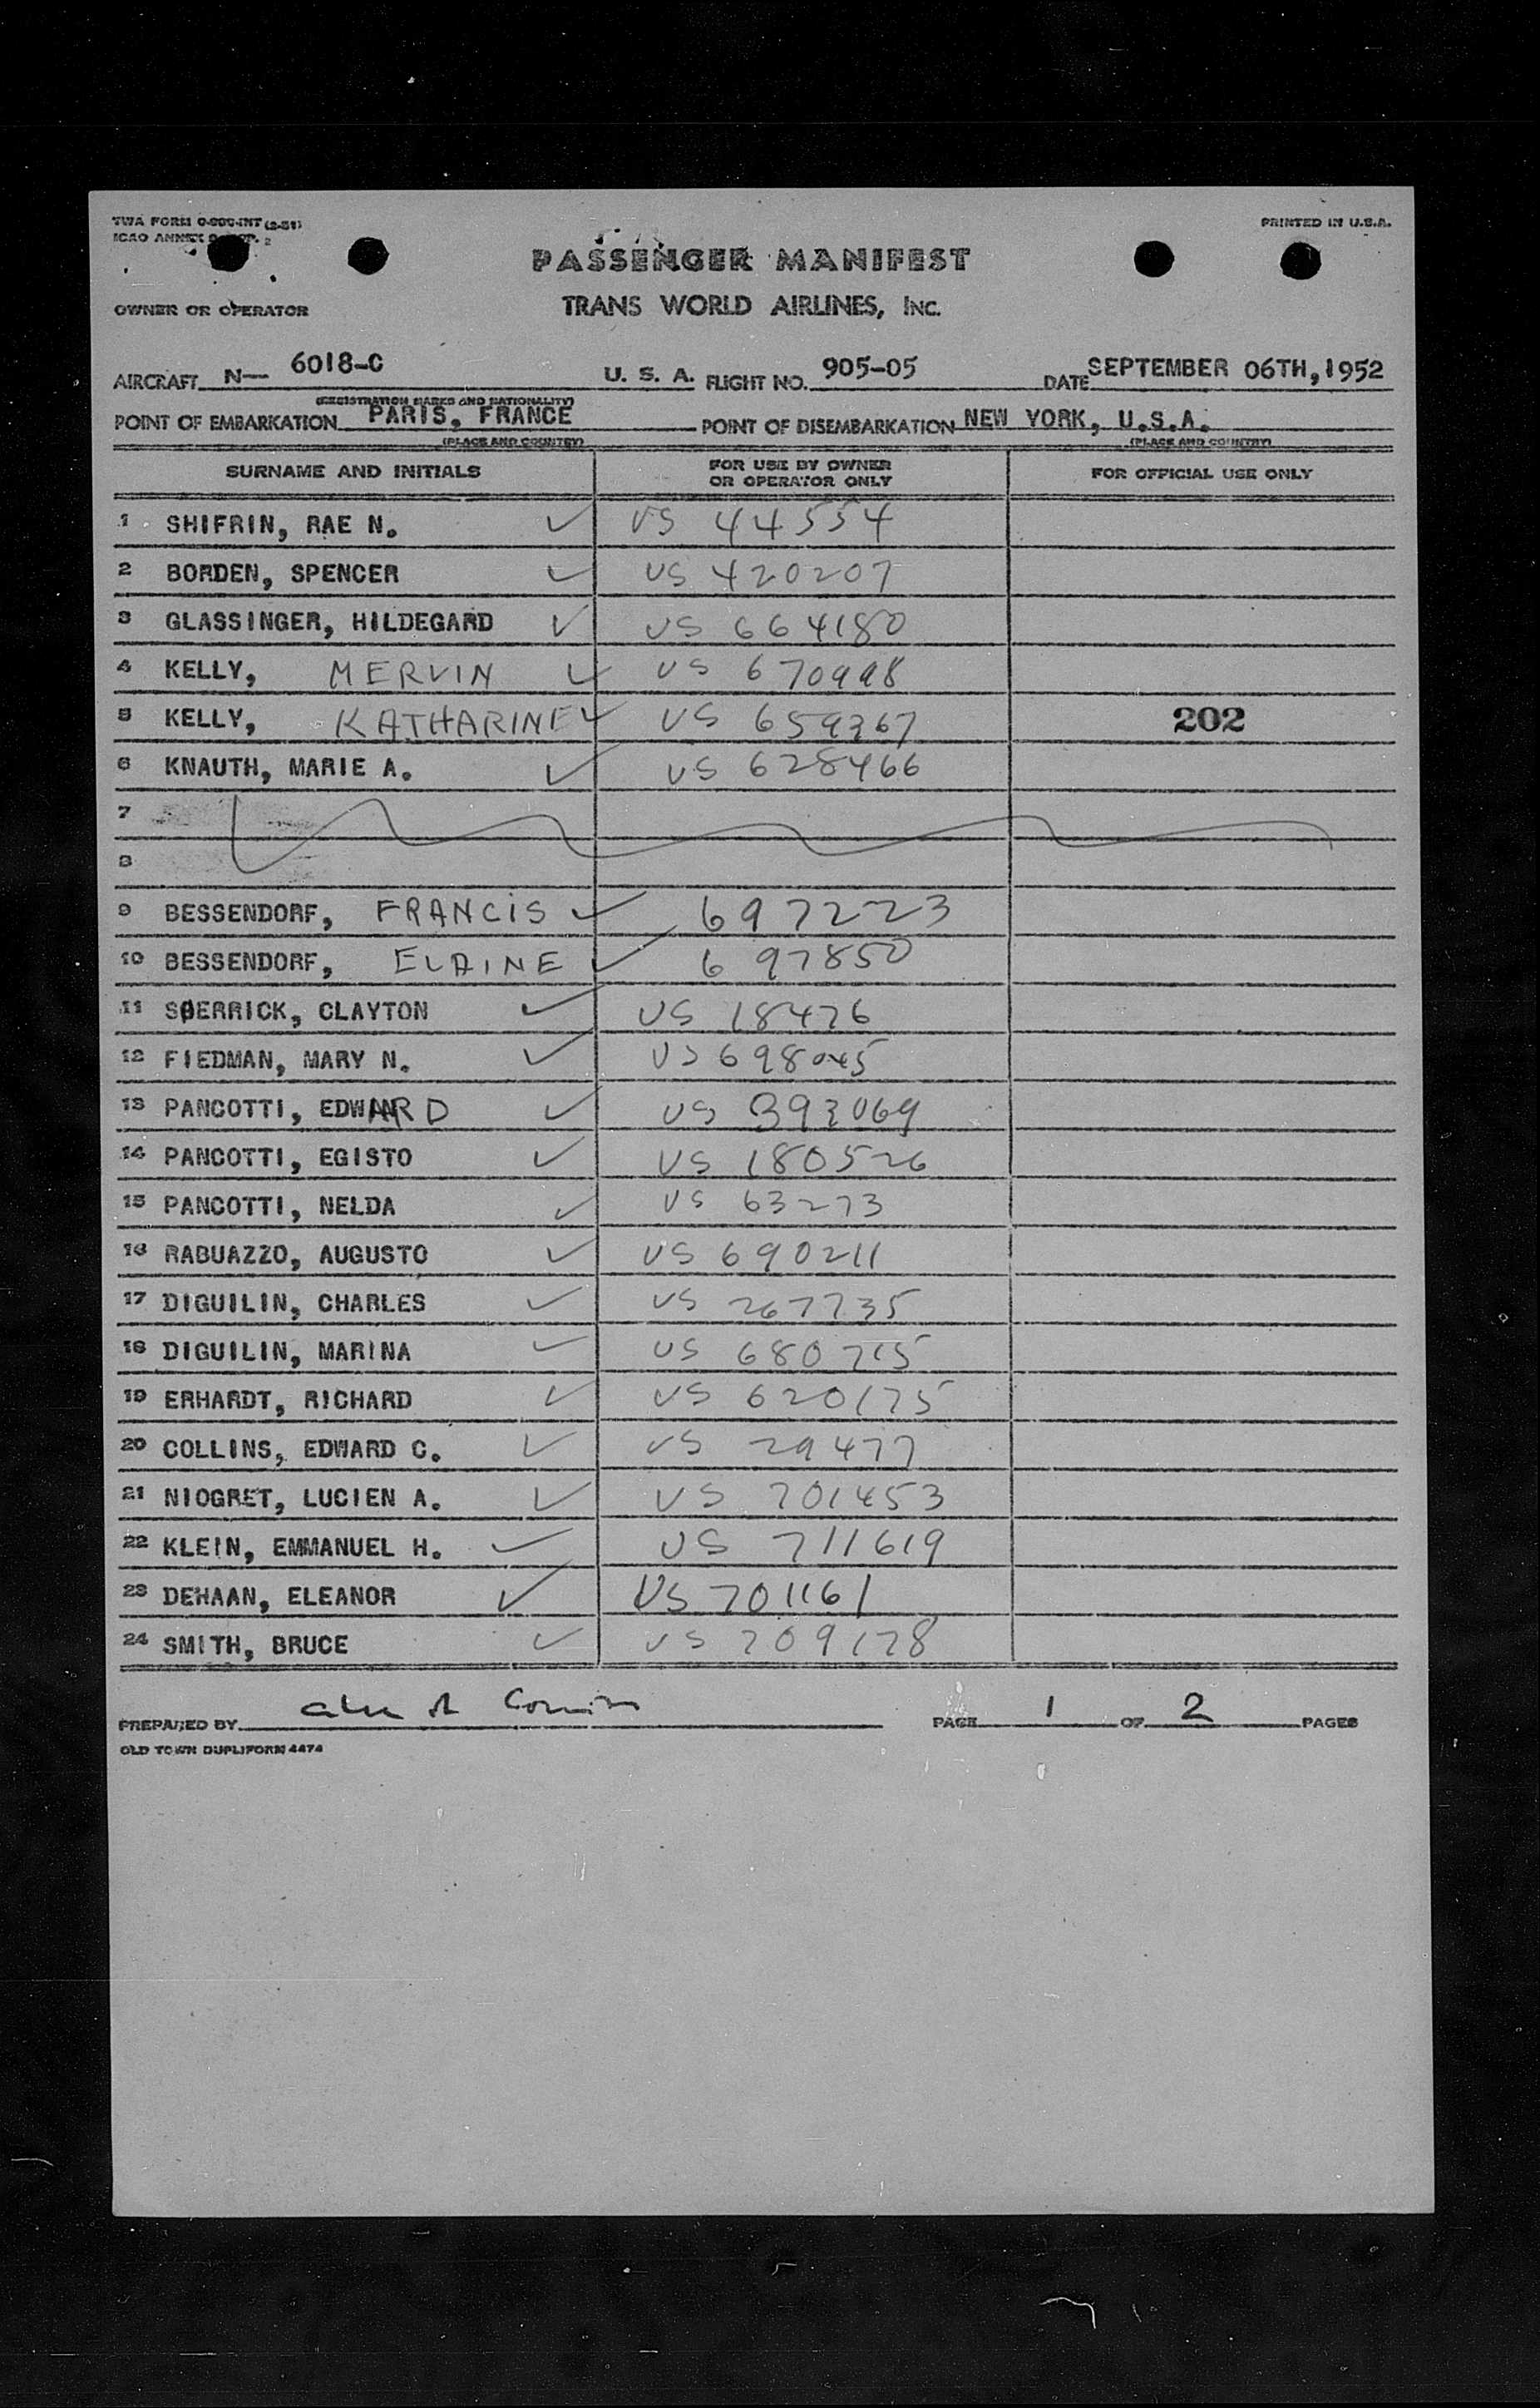 TWA FORM O-800-INT (2-51) PRINTED IN U.S.A.
ICAO ANNEX 2
PASSENGER MANIFEST
OWNER OR OPERATOR TRANS WORLD AIRLINES, INC.
AIRCRAFT N— 6018-C U. S. A. FLIGHT NO. 905-05 DATE SEPTEMBER 06TH, 1952
(REGISTRATION MARKS AND NATIONALITY)
POINT OF EMBARKATION PARIS, FRANCE POINT OF DISEMBARKATION NEW YORK, U.S.A.
(PLACE AND COUNTRY) (PLACE AND COUNTRY)
SURNAME AND INITIALS FOR USE BY OWNER OR OPERATOR ONLY FOR OFFICIAL USE ONLY
1 SHIFRIN, RAE N. ✓ US 44554
2 BORDEN, SPENCER ✓ US 420207
3 GLASSINGER, HILDEGARD ✓ US 664180
4 KELLY, MERVIN ✓ US 670998
5 KELLY, KATHARINE ✓ US 659367 202
6 KNAUTH, MARIE A. ✓ US 628466
7
8
9 BESSENDORF, FRANCIS ✓ 697223
10 BESSENDORF, ELAINE ✓ 697850
11 SPERRICK, CLAYTON ✓ US 18476
12 FIEDMAN, MARY N. ✓ US 698045
13 PANCOTTI, EDWARD ✓ US 393069
14 PANCOTTI, EGISTO ✓ US 180526
15 PANCOTTI, NELDA ✓ US 63273
16 RABUAZZO, AUGUSTO ✓ US 690211
17 DIGUILIN, CHARLES ✓ US 267735
18 DIGUILIN, MARINA ✓ US 680715
19 ERHARDT, RICHARD ✓ US 620175
20 COLLINS, EDWARD C. ✓ US 29477
21 NIOGRET, LUCIEN A. ✓ US 701453
22 KLEIN, EMMANUEL H. ✓ US 711619
23 DEHAAN, ELEANOR ✓ US 701161
24 SMITH, BRUCE ✓ US 709178
PREPARED BY PAGE 1 OF 2 PAGES
OLD TOWN DUPLIFORM 4474